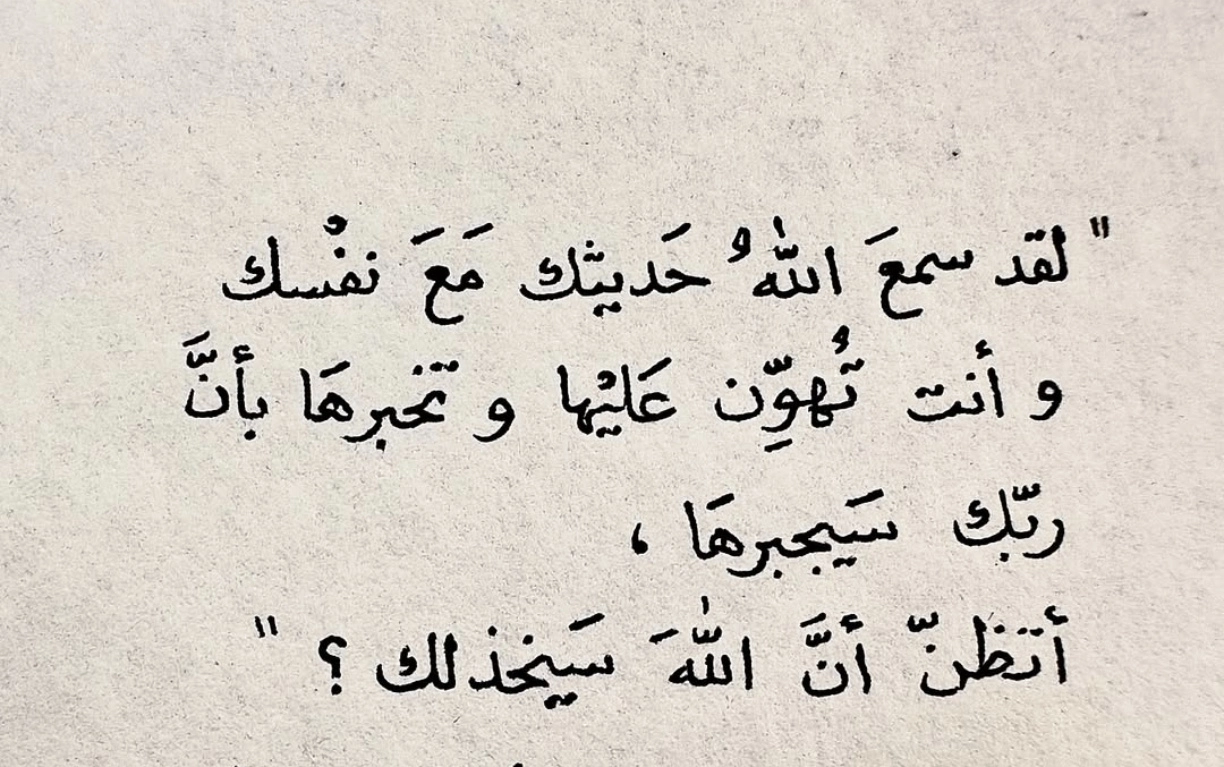 "لقد سمعَ اللهُ حَديثك مَعَ نفْسك
و أنت تُهوِّن عَليْها و تخبرهَا بأنَّ
ربّك سَيجبرهَا ،
أتظنّ أنَّ اللهَ سَيخذلك ؟ "